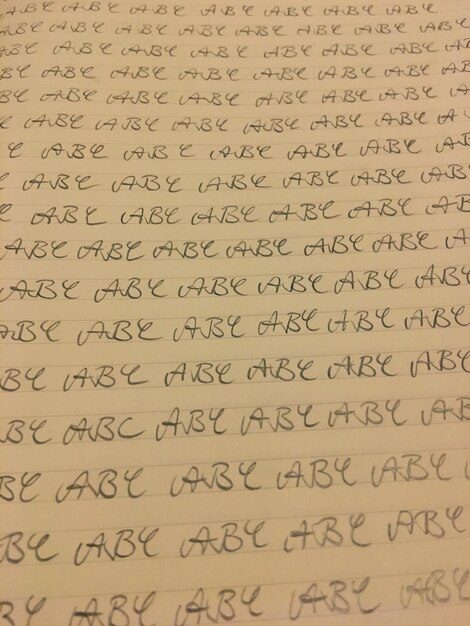 ABC ABC ABC ABC ABC ABC ABC
ABC ABC ABC ABC ABC ABC ABC
ABC ABC ABC ABC ABC ABC ABC AB
BC ABC ABC ABC ABC ABC ABC AB
BC ABC ABC ABC ABC ABC ABC A
C ABC ABC ABC ABC ABC ABC A
C ABC ABC ABC ABC ABC AB
C ABC ABC ABC ABC ABC AB
C ABC ABC ABC ABC ABC AB
ABC ABC ABC ABC ABC ABC A
ABC ABC ABC ABC ABC AB
ABC ABC ABC ABC ABC ABC
BC ABC ABC ABC ABC AB
BC ABC ABC ABC ABC AB
BC ABC ABC ABC ABC
BC ABC ABC ABC ABC
BC ABC ABC ABC ABC